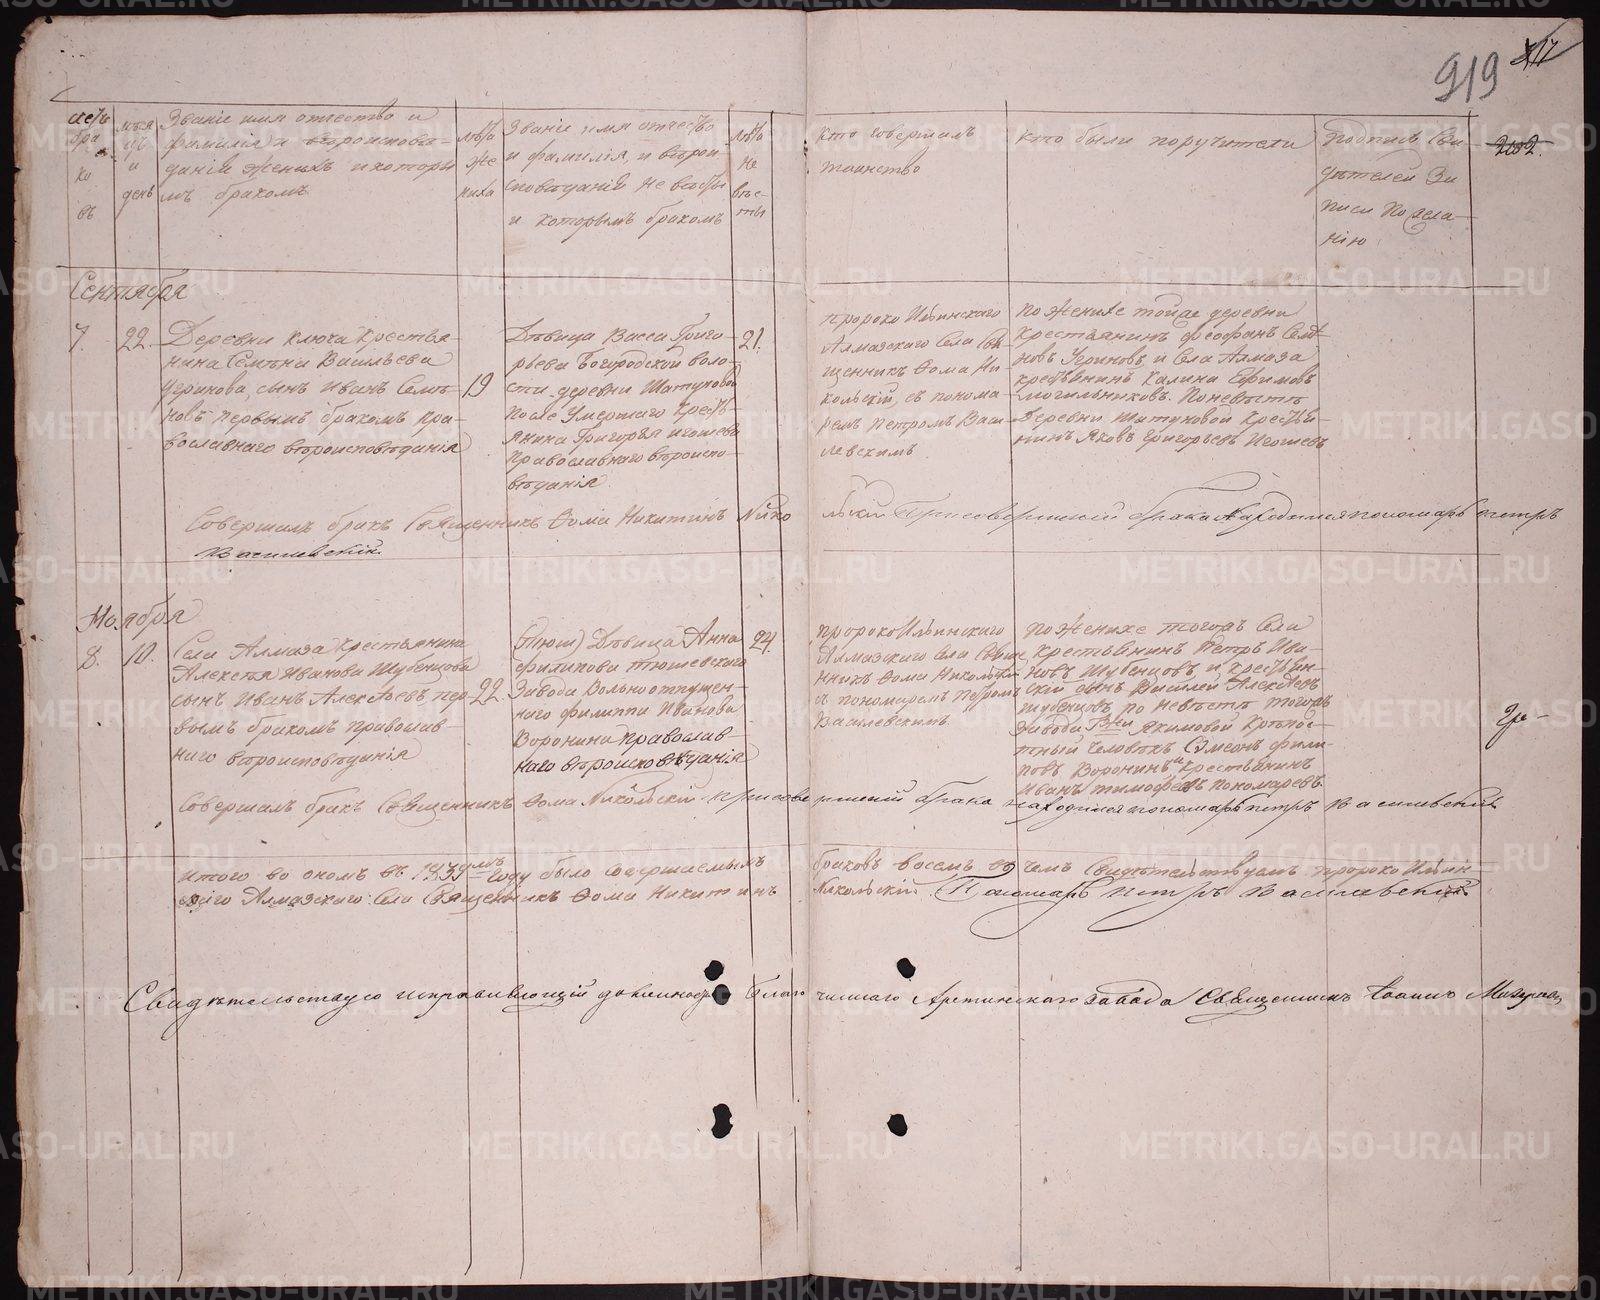 919
счетъ бра ко въ
мѣся цъ и день
Званіе имя отчество и
фамилія и вѣроисповѣ-
даніе жениха и которы
мъ бракомъ
лѣта же ниха
Званіе имя отчество
и фамилія, и вѣрои-
сповѣданіе невѣсты
и которымъ бракомъ
лѣта не вѣс- ты
Кто совершалъ
таинство
Кто были поручители
Подпись Сви-
дѣтелей За
писи по жела-
нію
Сентября
7. 22.
Деревни Ключа Крестья-
нина Семёна Васильева
Угринова, сынъ Иванъ Семё-
новъ первымъ бракомъ пра-
вославнаго вѣроисповѣданія
19
Дѣвица Васса Григо-
рьева Богородской воло-
сти деревни Шатуновой
После Умершаго Кресть-
янина Григорья Игошева
Православнаго вѣроиспо-
вѣданія
21.
Пророко Ильинскаго
Алмазскаго Села Свя
щенникъ Ѳома Ни-
кольскій, съ понома-
ремъ Петромъ Васи-
левскимъ
По Женихе тойже деревни
Крестьянинъ Феофанъ Семё-
новъ Угриновъ и Села Алмаза
крестьянинъ Калина Ефимовъ
Могильниковъ. По невѣстѣ
деревни Шатуновой Крестья-
нинъ Яковъ Григорьевъ Игошевъ
Совершалъ бракъ Священникъ Ѳома Никитинъ Нико льскій При совершеніи брака Находился пономарь Петръ
Василевскій
Ноября
8. 10.
Села Алмаза Крестьянина
Алексея Иванова Шубенцова
сынъ Иванъ Алексѣевъ, пер-
вымъ бракомъ православ-
наго вѣроисповѣданія
22.
Дѣвица Анна
Филипова Тюшевскаго
Завода Вольноотпущен-
наго Филиппа Иванова
Воронина православ-
наго вѣроисповѣданія
24.
Пророко Ильинскаго
Алмазскаго Села Свяще
нникъ Ѳома Никольскій
съ пономаремъ Петромъ
Василевскимъ.
По Женихе тогожъ Села
Крестьянинъ Петръ Ива-
новъ Шубенцовъ и крестьян-
скій сынъ Василей Алексѣевъ
Шубенцовъ по невѣстѣ тогожъ
Завода Г-жи Якимовой Крѣпос-
тный Человѣкъ Самсонъ Фили-
повъ Воронинъ и Крестьянинъ
Иванъ Тимофеевъ Пономаревъ.
Совершалъ бракъ Священникъ Ѳома Никольскій при сове ршеніи брака находился пономарь Петръ Василевскій
Итого во ономъ въ 1839мъ Году было совершаемымъ браковъ восемь въ чемъ Свидѣтельствуемъ пророко Ильин-
скаго Алмазскаго Села Священникъ Ѳома Никитинъ Никольскій. Пономарь Петръ Василевскій
Свидѣтельствую исправляющій должность благо чиннаго Артинскаго завода Священникъ Іоаннъ